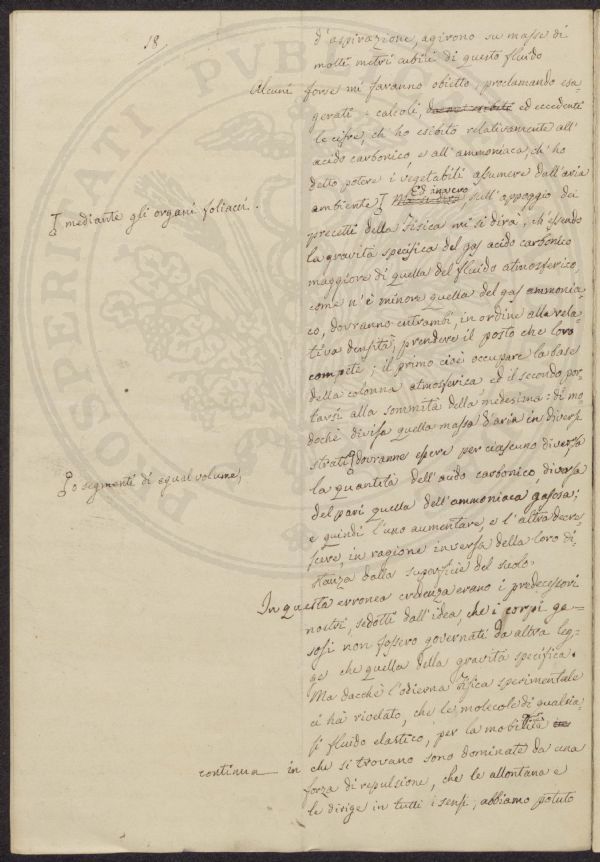 18.
d'aspirazione, agirono su masse di
molti metri cubici di questo fluido
Alcuni forse mi faranno obietto, proclamando esa-
gerati i calcoli, ed eccedenti
le cifre, ch'ho esibito relativamente all'
acido carbonico e all'ammoniaca, ch'ho
detto potere i vegetabili assumere dall'aria
ambiente Ed invero sull'appoggio dei
mediante gli organi foliacei.
precetti della fisica mi si dirà, ch'essendo
la gravità specifica del gas acido carbonico
maggiore di quella del fluido atmosferico,
come n'è minore quella del gas ammonia-
co, dovranno entrambi, in ordine alla rela-
tiva densità, prendere il posto che loro
compete; il primo cioè occupare la base
della colonna atmosferica ed il secondo por-
tarsi alla sommità della medesima: di mo
dochè divisa quella massa d'aria in diversi
strati dovranno essere per ciascuno diversa
o segmenti di egual volume,
la quantità dell'acido carbonico, diversa
del pari quella dell'ammoniaca gasosa;
e quindi l'uno aumentare, e l'altra decre-
scere, in ragione inversa della loro di-
stanza dalla superficie del suolo.
In questa erronea credenza erano i predecessori
nostri, sedotti dall'idea, che i corpi ga-
sosi non fossero governati da altra leg-
ge che quella della gravità specifica.
Ma dacchè l'odierna fisica sperimentale
ci ha rivelato, che le molecole di qualsia-
si fluido elastico, per la mobilità
continua in che si trovano sono dominate da una
forza di repulsione, che le allontana e
le dirige in tutti i sensi, abbiamo potuto
PROSPERITATI PUBLICAE